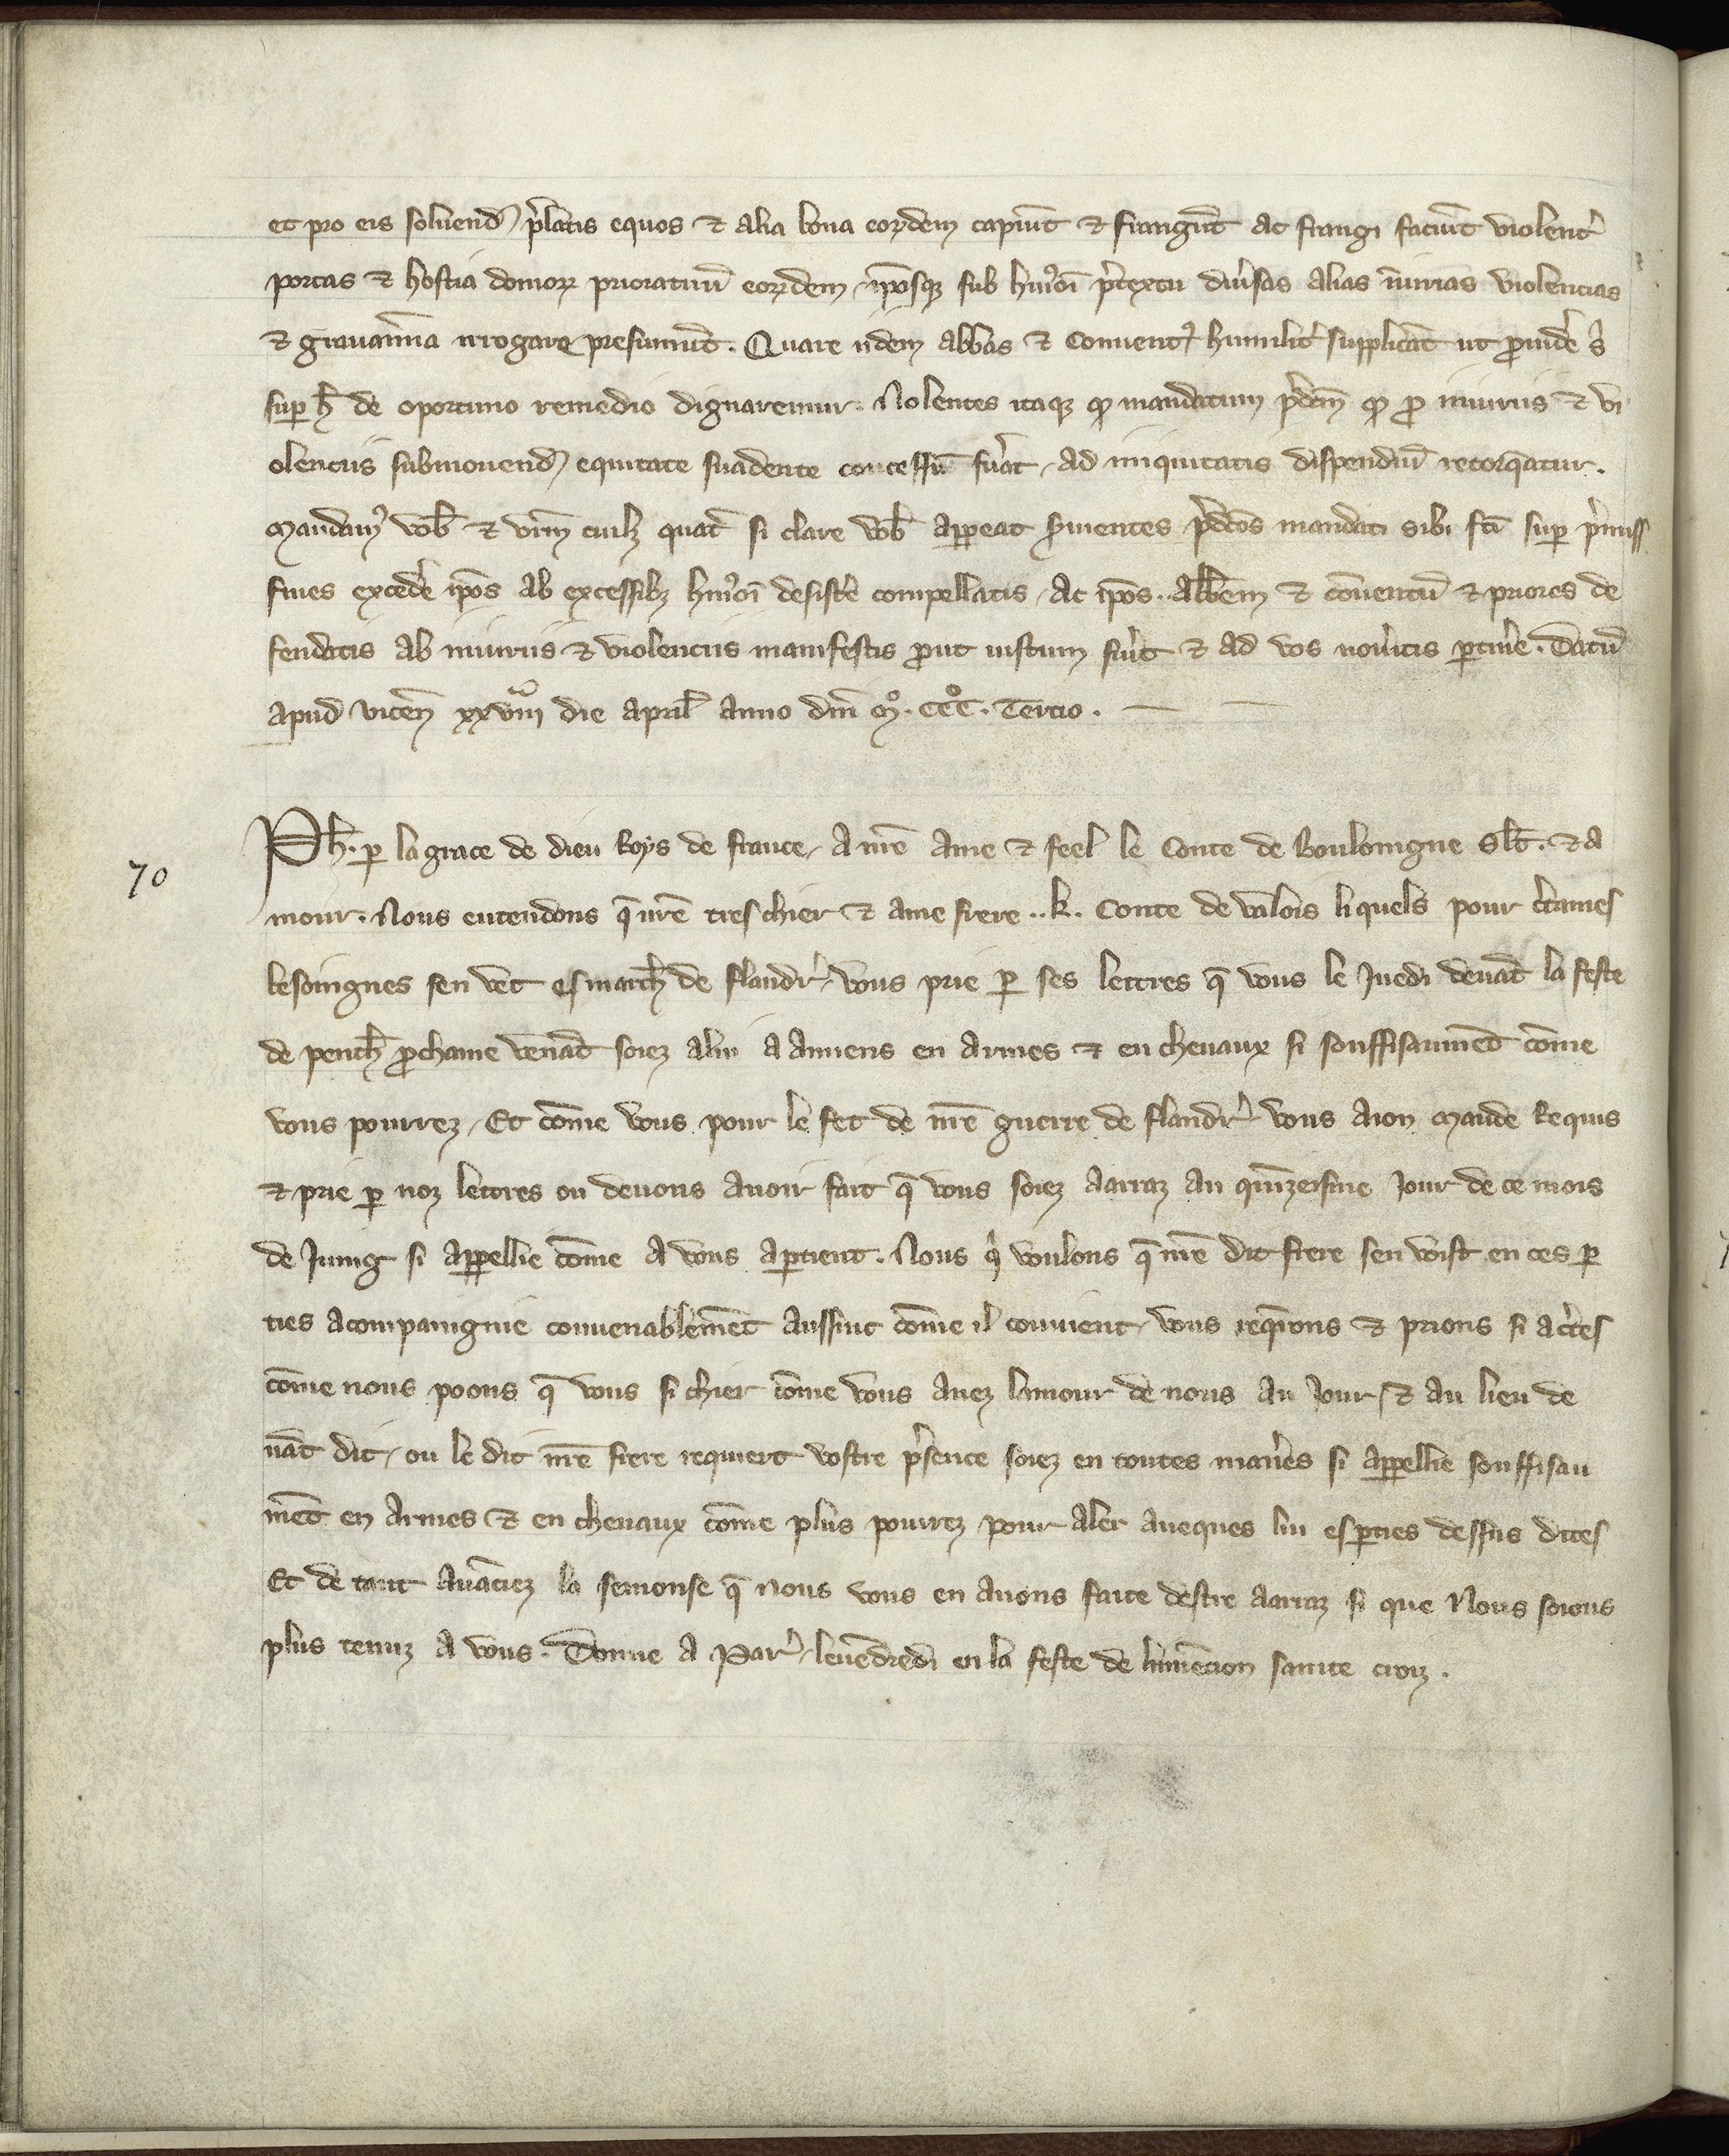 et pro eis soluend p̃latis equos & alia bona eoꝝdem capiũt & frangũt ac frangi faciũt violent̾
portas & hostia domoꝝ prioratuũ eoꝝdem, ip̃osqꝫ sub hm̾oi p̾textu diu̾sas alias iniurias violencias
& grauamĩa irrogare presumũt. Quare iidem abbas & Conuentꝰ humilit̾ supplicãt ut ꝓuide s̾
suꝑ h̾ de oportuno remedio dignaremur. Nolentes itaqꝫ ꝙ mandatum p̾dc̃m ꝙ ꝓ iniuriis & vi
olenciis submouend equitate suadente concessũ fu̾at, ad iniquitatis dispendiũ retorq̃atur.
Mandamꝰ vob̃ & vr̃m cuilꝫ quat̾ si clare vob̃ appeat s̾uientes p̾dc̃os mandati sibi fc̃i suꝑ p̾miss
fines excede̾ ip̃os ab excessibꝫ hm̾oi desiste̾ compellatis, Ac ip̃os. abbẽm & cõuentũ & priores de
fendatis ab iniuriis & violenciis manifestis ꝓut iustum fu̾it & ad vos nou̾itis ꝑtine̾. Datũ
apud vicen̾ xxviiiᵃ die april̾ anno dñi mͦ. CCCͦ. Tercio.
70
Ph̃. ꝑ la grace de dieu Roys de france, A nr̃e ame & feel le Conte de Bouloingne Sl̃t. & a
mour. Nous entendons q̃ nr̃e tres chier & ame frere .. k. Conte de valois li quels pour c̾taines
besoingnes sen vet es march̃ de flandr̾, vous prie ꝑ ses lettres q̃ vous le Juedi deuãt la feste
de penth̃ ꝓchaine venãt soiez a lui a Amiens en armes & en cheuaux si souffisaumẽt cõme
vous pourrez, Et cõme vous pour le fet de nr̃e guerre de flandr̾ vous aion mande Requis
& prie ꝑ noz lettres ou deuons auoir fait q̃ vous soiez aarraz au quĩzeisme Jour de ce mois
de Juing si appellie cõme a vous aꝑtient. Nous q̾ voulons q̃ nr̃e dit frere sen voist en ces ꝑ
ties acompaingnie conuenablemẽt aussint cõme il conuient, vous reqr̃ons & prions si ac̾tes
cõme nous poons q̃ vous si chier cõme vous auez lamour de nous au Jour, & au lieu de
uãt dit, ou le dit nr̃e frere requiert vostre p̾sence soiez en toutes manie̾s si appellie souffisau
mẽt en armes & en cheuaux cõme plus pourrez pour aler aueques lui es ꝑties dessus dites
Et de tant auãciez la semonse q̃ nous vous en auons faite destre aarraz si que Nous soions
plus tenuz a vous. Donne a Par̾, le uẽdredi en la feste de linuẽcion sainte croiz.